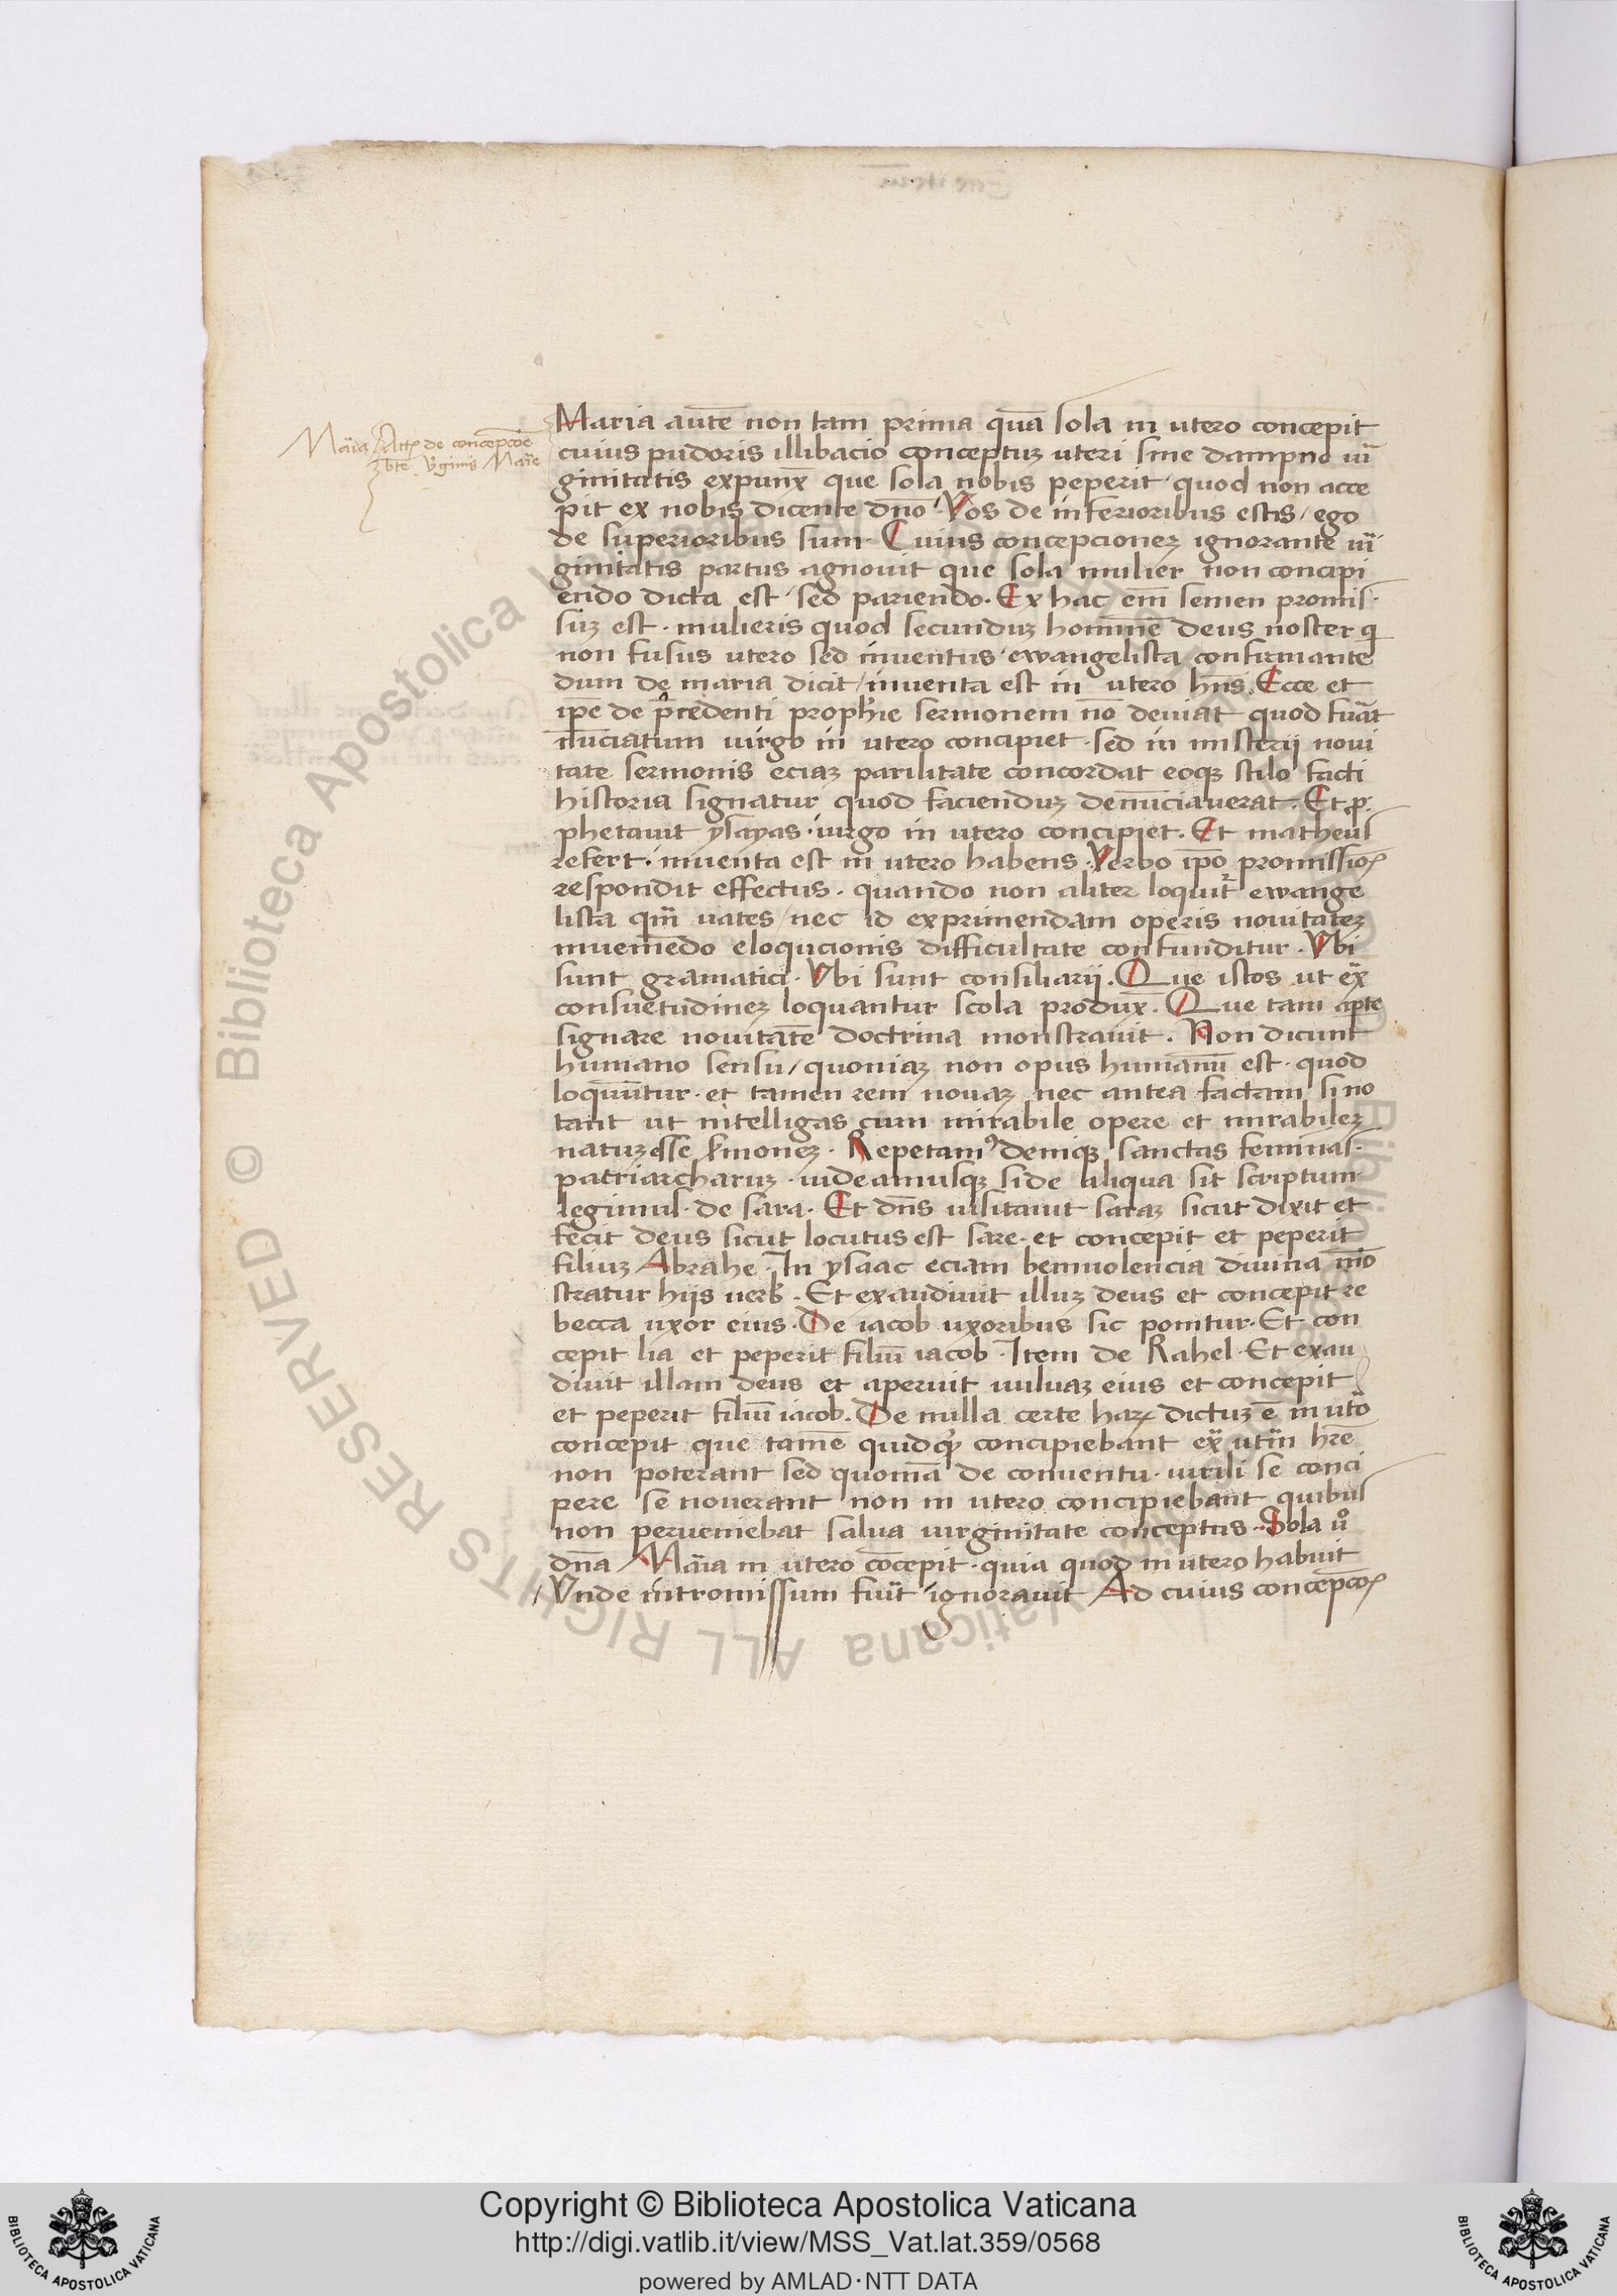 Maria autē non tam prima quā sola in utero concepit
cuius pudoris illibacio conceptuz uteri sine dampno ui
ginitatis expunx̄ que sola nobis peperit quod non acce
pit ex nobis dicente dno Vos de inferioribus estis / ego
de superioribus sum Cuius concepcionez ignorante ui
ginitatis partus agnouit que sola mulier non concipi
endo dicta est sed pariendo. Ex hac em̄ semen promis
suz est mulieris quod secunduz hominē deus noster q
non fusus utero sed inventus ewangelista confirmante
dum de maria dicit / inventa est in utero hn̄s. Ecce et
ip̄e de p̄cedenti prophīe sermonem nō deuiat quod fuāt
nūciatum uirgo in utero concipiet sed in misterij noui
tate sermonis eciaz parilitate concordat eoqz stilo facti
historia signatur quod faciendum denūciauerat. Et p
phetauit ysayas uirgo in utero concipiet. Et matheus
refert. inuenta est in utero habens Verbo ip̄o promissio
respondit effectus. quando non aliter loquit̄ ewange
lista qm̄ uates / nec id exprimendam operis nouitatez
inueniēdo eloqucionis difficultate confunditur. Vbi
sunt gramatici. Vbi sunt consiliarij. Que istos ut ex̄
consuetudinez loquantur scola produx̄. Que tam ap̄te
signare nouitatē doctrina monstrauit. Non dicunt
humano sensu / quoniaz non opus humanū est quod
loquūtur et tamen rem nouaz nec antea factam si no
tant ut intelligas cum mirabile opere et mirabilez
natuz esse s̄monez. Repetam9 deniqz sanctas feminas
patriarcharuz uideamusqz si de aliqua sit scriptum
legimus de sara. Et dn̄s uisitauit saraz sicut dixit et
fecit deus sicut locutus est sare et concepit et peperit
filiuz Abrahe In ysaac eciam beniuolencia diuina mō
stratur hijs uerb̄. Et exaudiuit illuz deus et concepit re
becca uxor eius. De iacob uxoribus sic ponitur. Et con
cepit lia et peperit filiū iacob. Item de Rahel Et exau
diuit illam deus et aperuit uuluaz eius et concepit
et peperit filiū iacob. De nulla certe har dictuz ē in utō
concepit que tamē quidqz concipiebant hr̄e
non poterant sed quoniā de conuentu uirili se conci
pere se nouerant non in utero concipiebant quibus
non perueniebat salua uirginitate conceptus. Sola ūo
dn̄a Māia in utero cōcepit quia quod in utero habuit
Vnde intromissum fuīt ignorauit Ad cuius concepcō
Māia de concepcōe
b̄te V̄ginis Marīe
© Biblioteca Apostolica Vaticana ALL RIGHTS RESERVED
Copyright © Biblioteca Apostolica Vaticana
http://digi.vatlib.it/view/MSS_Vat.lat.359/0568
powered by AMLAD·NTT DATA
BIBLIOTECA APOSTOLICA VATICANA
BIBLIOTECA APOSTOLICA VATICANA